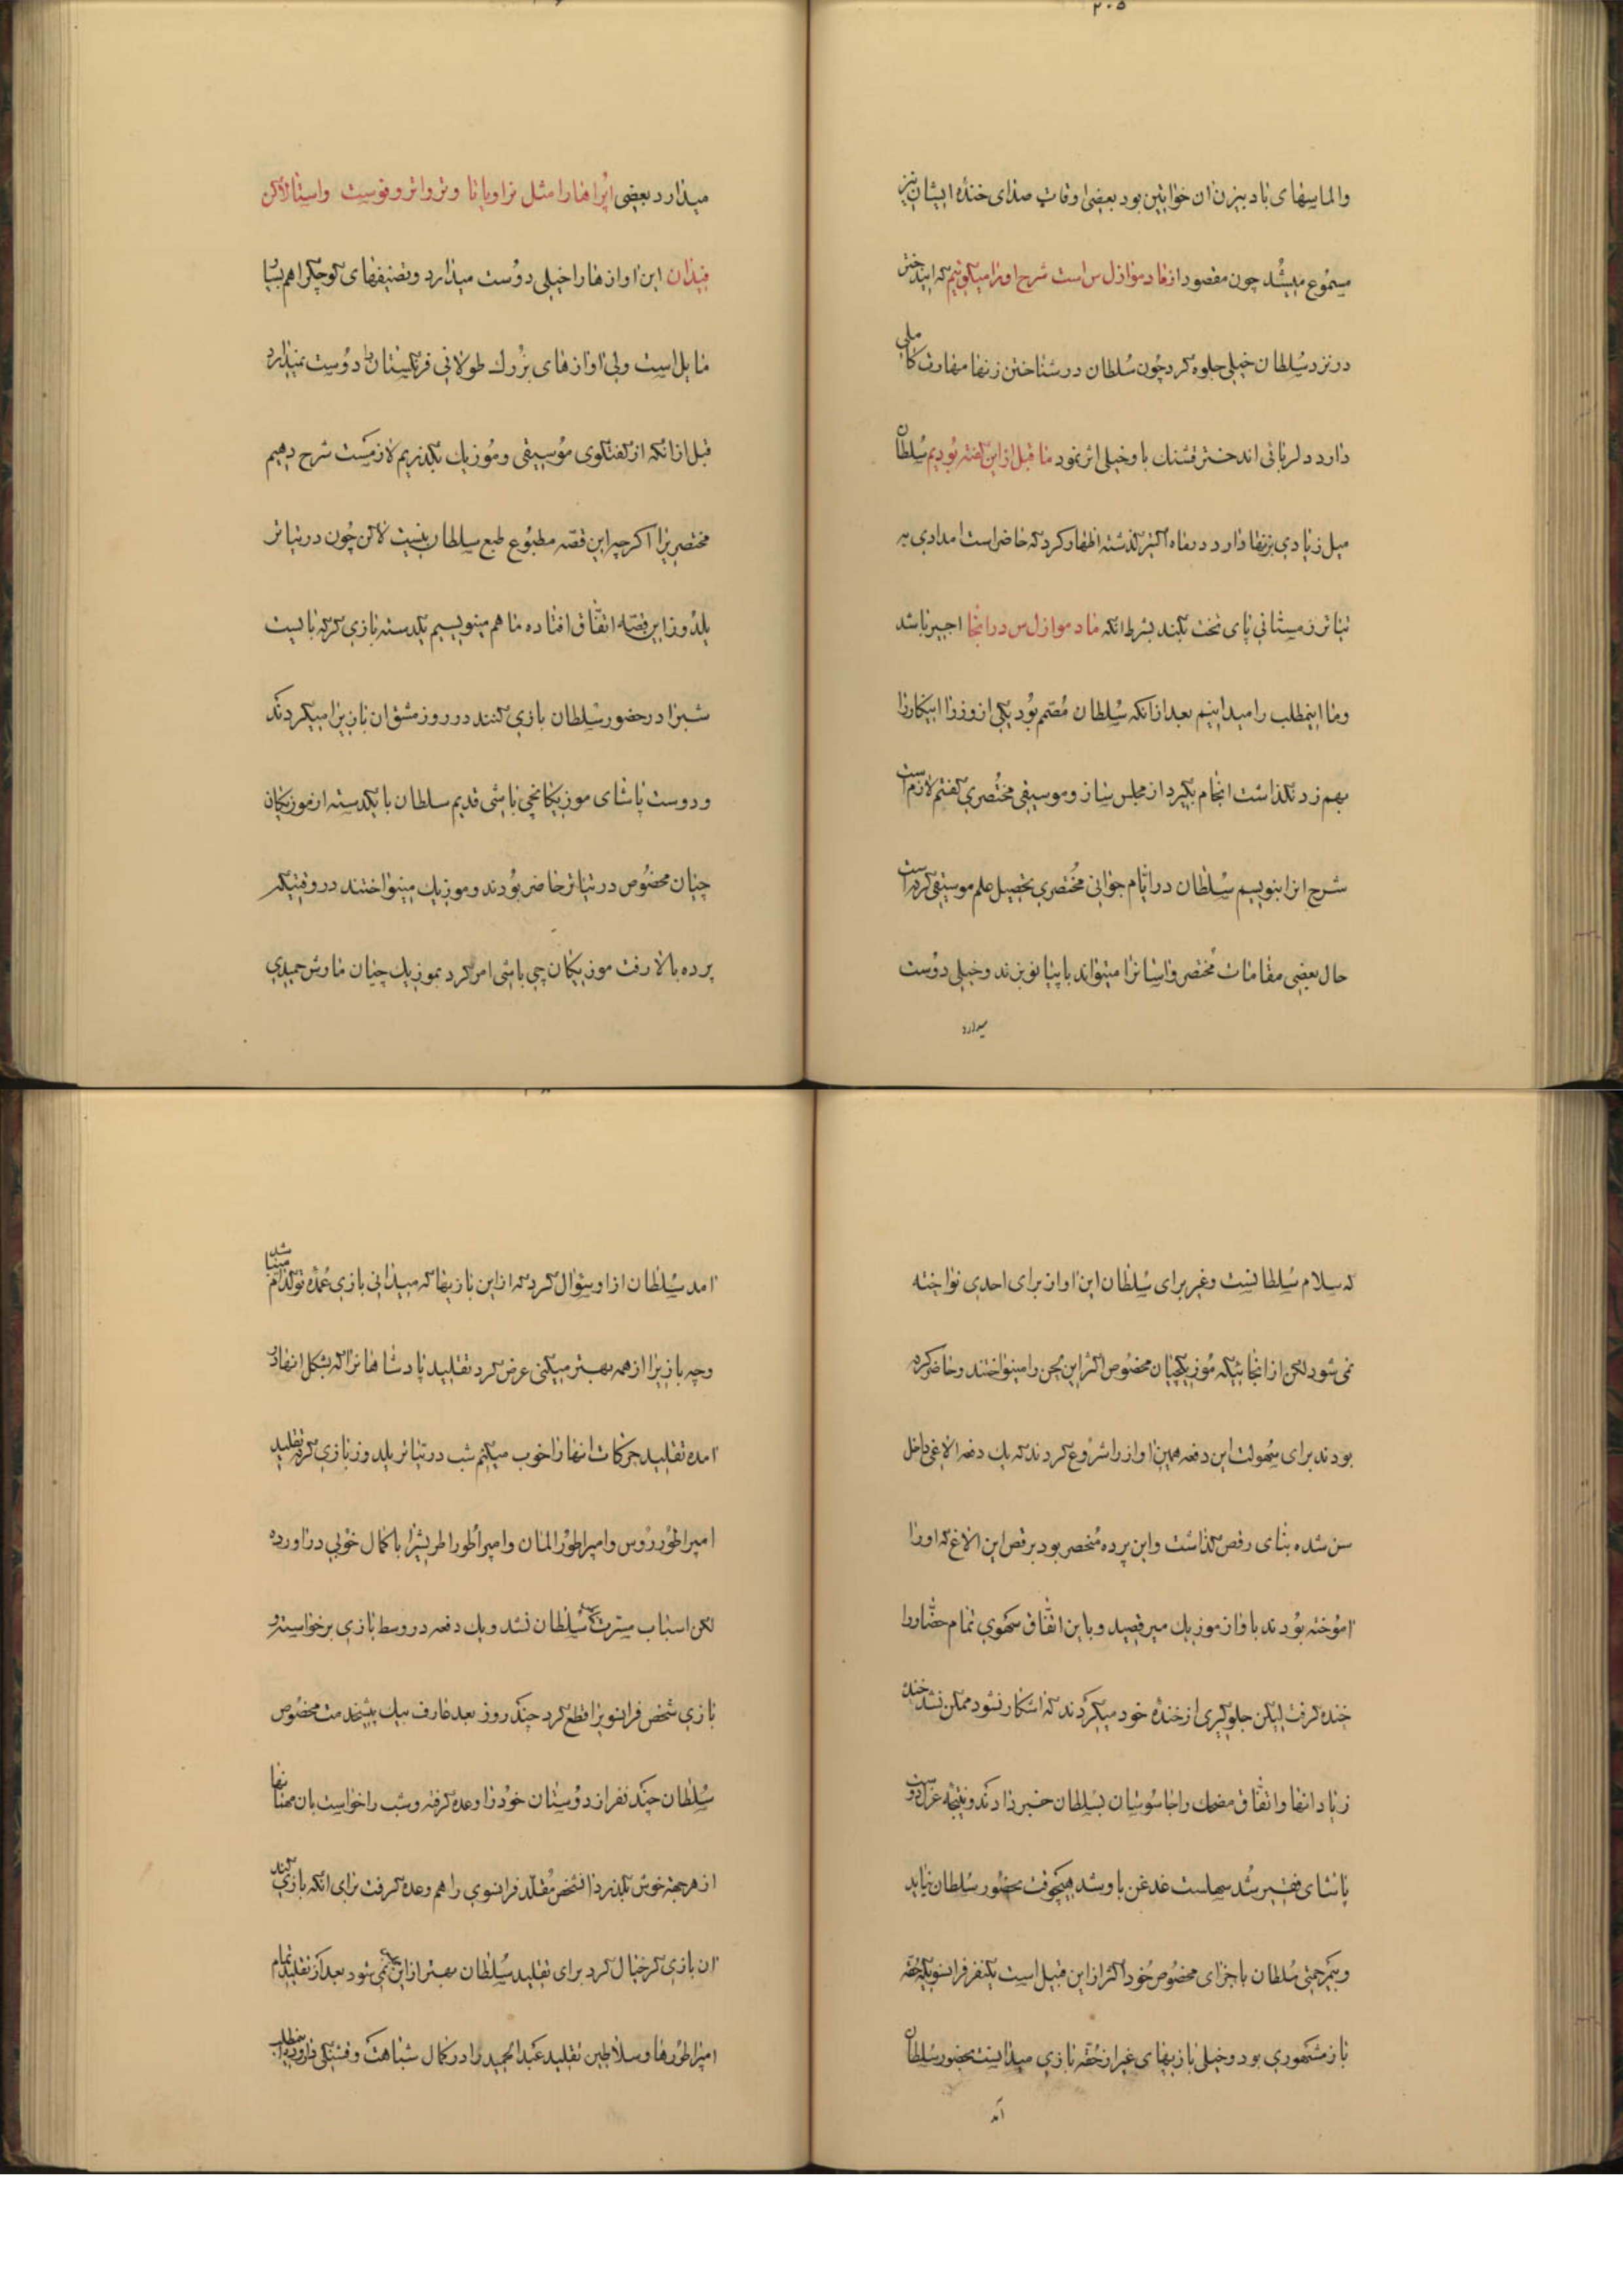 ۲۰۵
والماسهای بادبیزن ان خواتین بود بعضی اوقات صدای خندهٔ ایشان نیز
مسموع میشد چون مقصود از مادموازل س است شرح او را میگوئیم که ایندختر
در نزد سلطان خیلی جلوه کرد چون سلطان در شناختن زنها مهارت کاملی
دارد دلربائی اندختر قشنك باو خیلی اثر نمود ما قبل از این گفته بودیم سلطان
میل زیادی بزنها دارد در ماه اکتبر گذشته اظهار کرد که حاضر است امدادی به
تیاتر زمستانی پای تخت بکند بشرط انکه مادموازل س در انجا اجیر باشد
وما اینمطلب را میدانیم بعد از انکه سلطان مصمم بود یکی از وزرا اینکار را
بهم زد نگذاشت انجام بگیرد از مجلس ساز و موسیقی مختصری گفتم لازم است
شرح انرا بنویسم سلطان در ایام جوانی مختصری تحصیل علم موسیقی کرده است
حال بعضی مقامات مختصر واسانرا میتواند با پیانو بزند وخیلی دوست
میدارد
میدارد بعضی اپراهارا مثل تراویاتا وتر واتر وفوست واستالاکن
فیدان این اوازهارا خیلی دوست میدارد وتصنیفهای کوچکرا هم بسیار
مایل است ولی اوازهای بزرك طولانی فرنگستان را دوست نمیدارد
قبل از انکه از گفتگوی موسیقی وموزیك بگذریم لازمست شرح دهیم
مختصریرا اکرچه این قصه مطبوع طبع سلطان نیست لاکن چون در تیاتر
یلدوز این قصه اتفاق افتاده ما هم مینویسیم یکدسته بازی گر که بایست
شبرا در حضور سلطان بازی کنند در روز مشق ان بازیرا میکردند
ودوست پاشای موزیکانچی باشی قدیم سلطان با یکدسته از موزیکان
چیان مخصوص در تیاتر حاضر بودند وموزیك مینواختند در وقتیکه
پرده بالا رفت موزیکان چی باشی امر کرد بموزیك چیان مارش حمیدی
که سلام سلطانیست وغیر برای سلطان این اواز برای احدی نواخته
نمی شود لکن از انجائیکه موزیکچیان مخصوص اکثر این لحن را مینواختند وحاضر کرده
بودند برای سهولت این دفعه همین اواز را شروع کردند که یك دفعه الاغی داخل
سن شده بنای رقص گذاشت واین پرده منحصر بود برقص این الاغ که اورا
اموخته بودند باواز موزیك میرقصید وباین اتفاق سهوی تمام حضار را
خنده گرفت لیکن جلوگیری از خندهٔ خود میکردند که اشکار نشود ممکن نشد خندهٔ
زیاد انها واتفاق مضحك را جاسوسان بسلطان خبر دادند ونتیجه عزل دوست
پاشای فقیر شد سهلست غدغن باو شد هیچوقت بحضور سلطان نیاید
وبیمرحمتی سلطان باجزای مخصوص خود اکثر از این قبیل است یکنفر فرانسویکه حقه
باز مشهوری بود وخیلی بازیهای غیر از حقه بازی میدانست بحضور سلطان
آمد
امد سلطان از او سئوال کرد که از این بازیها که میدانی بازی عمدهٔ تو کدام میباشد
وچه بازیرا از همه بهتر میکنی عرض کرد تقلید پادشاهانرا که بشکل انها در
امده تقلید حرکات انها را خوب میکنم شب در تیاتر یلدوز بازی کرده تقلید
امپراطور روس وامپراطور المان وامپراطور اطریشرا با کمال خوبی در اورده
لکن اسباب مسرت سلطان نشد ویك دفعه در وسط بازی برخواسته و
بازی شخص فرانسویرا قطع کرد چند روز بعد عارف بیك پیشخدمت مخصوص
سلطان چند نفر از دوستان خود را وعده گرفته وشب را خواست بان مهمانها
از هر جهة خوش بگذرد انشخص مقلد فرانسوی را هم وعده گرفت برای انکه بازی کند
ان بازی گر خیال کرد برای تقلید سلطان بهتر از این نمی شود بعد از تقلید تمام
امپراطورها وسلاطین تقلید عبدالحمید را در کمال شباهت وقشنگی در اورد